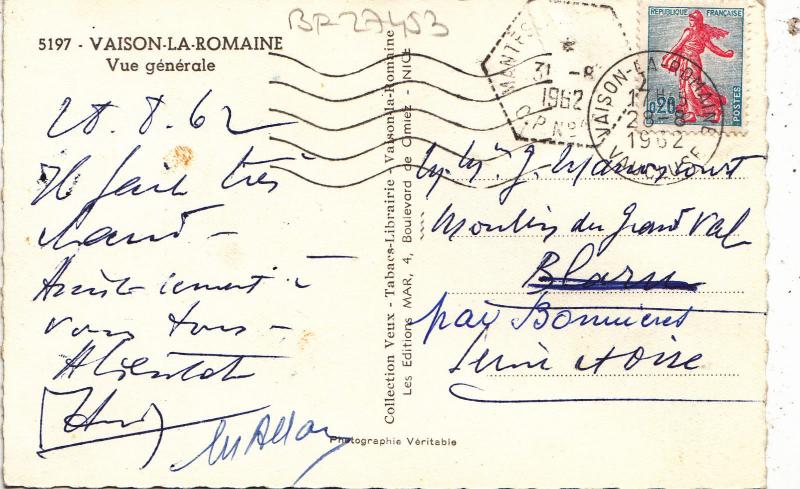 BP-27453
5197 - VAISON-LA-ROMAINE
Vue générale
28.8.62
Il fait très
chaud -
Amicalement à
vous tous -
A bientôt
Collection Veux - Tabacs-Librairie - Vaison-la-Romaine
Les Editions MAR, 4, Boulevard de Cimiez - NICE
Photographie Véritable
31 - 8
1962
RÉPUBLIQUE FRANÇAISE
0,20
POSTES
VAISON-LA-ROMAINE
28-8
1962
VAUCLUSE
Moulin du Grand Val
Blaru
par Bonnières
Seine et Oise